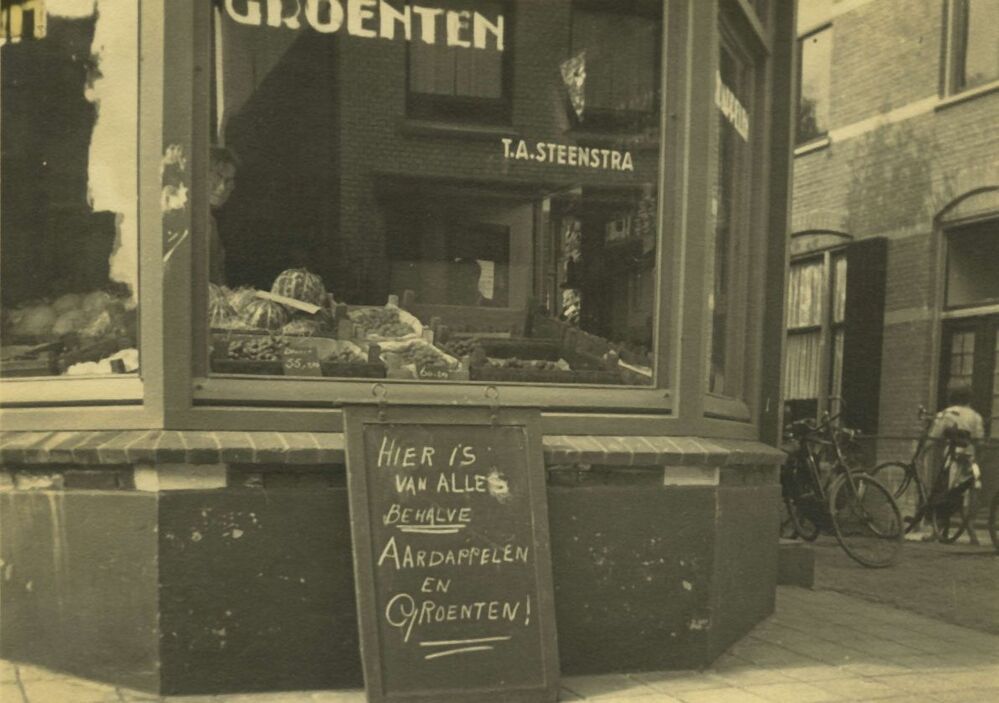 GROENTEN
T.A. STEENSTRA
HIER IS
VAN ALLES
BEHALVE
AARDAPPELEN
EN
GROENTEN!